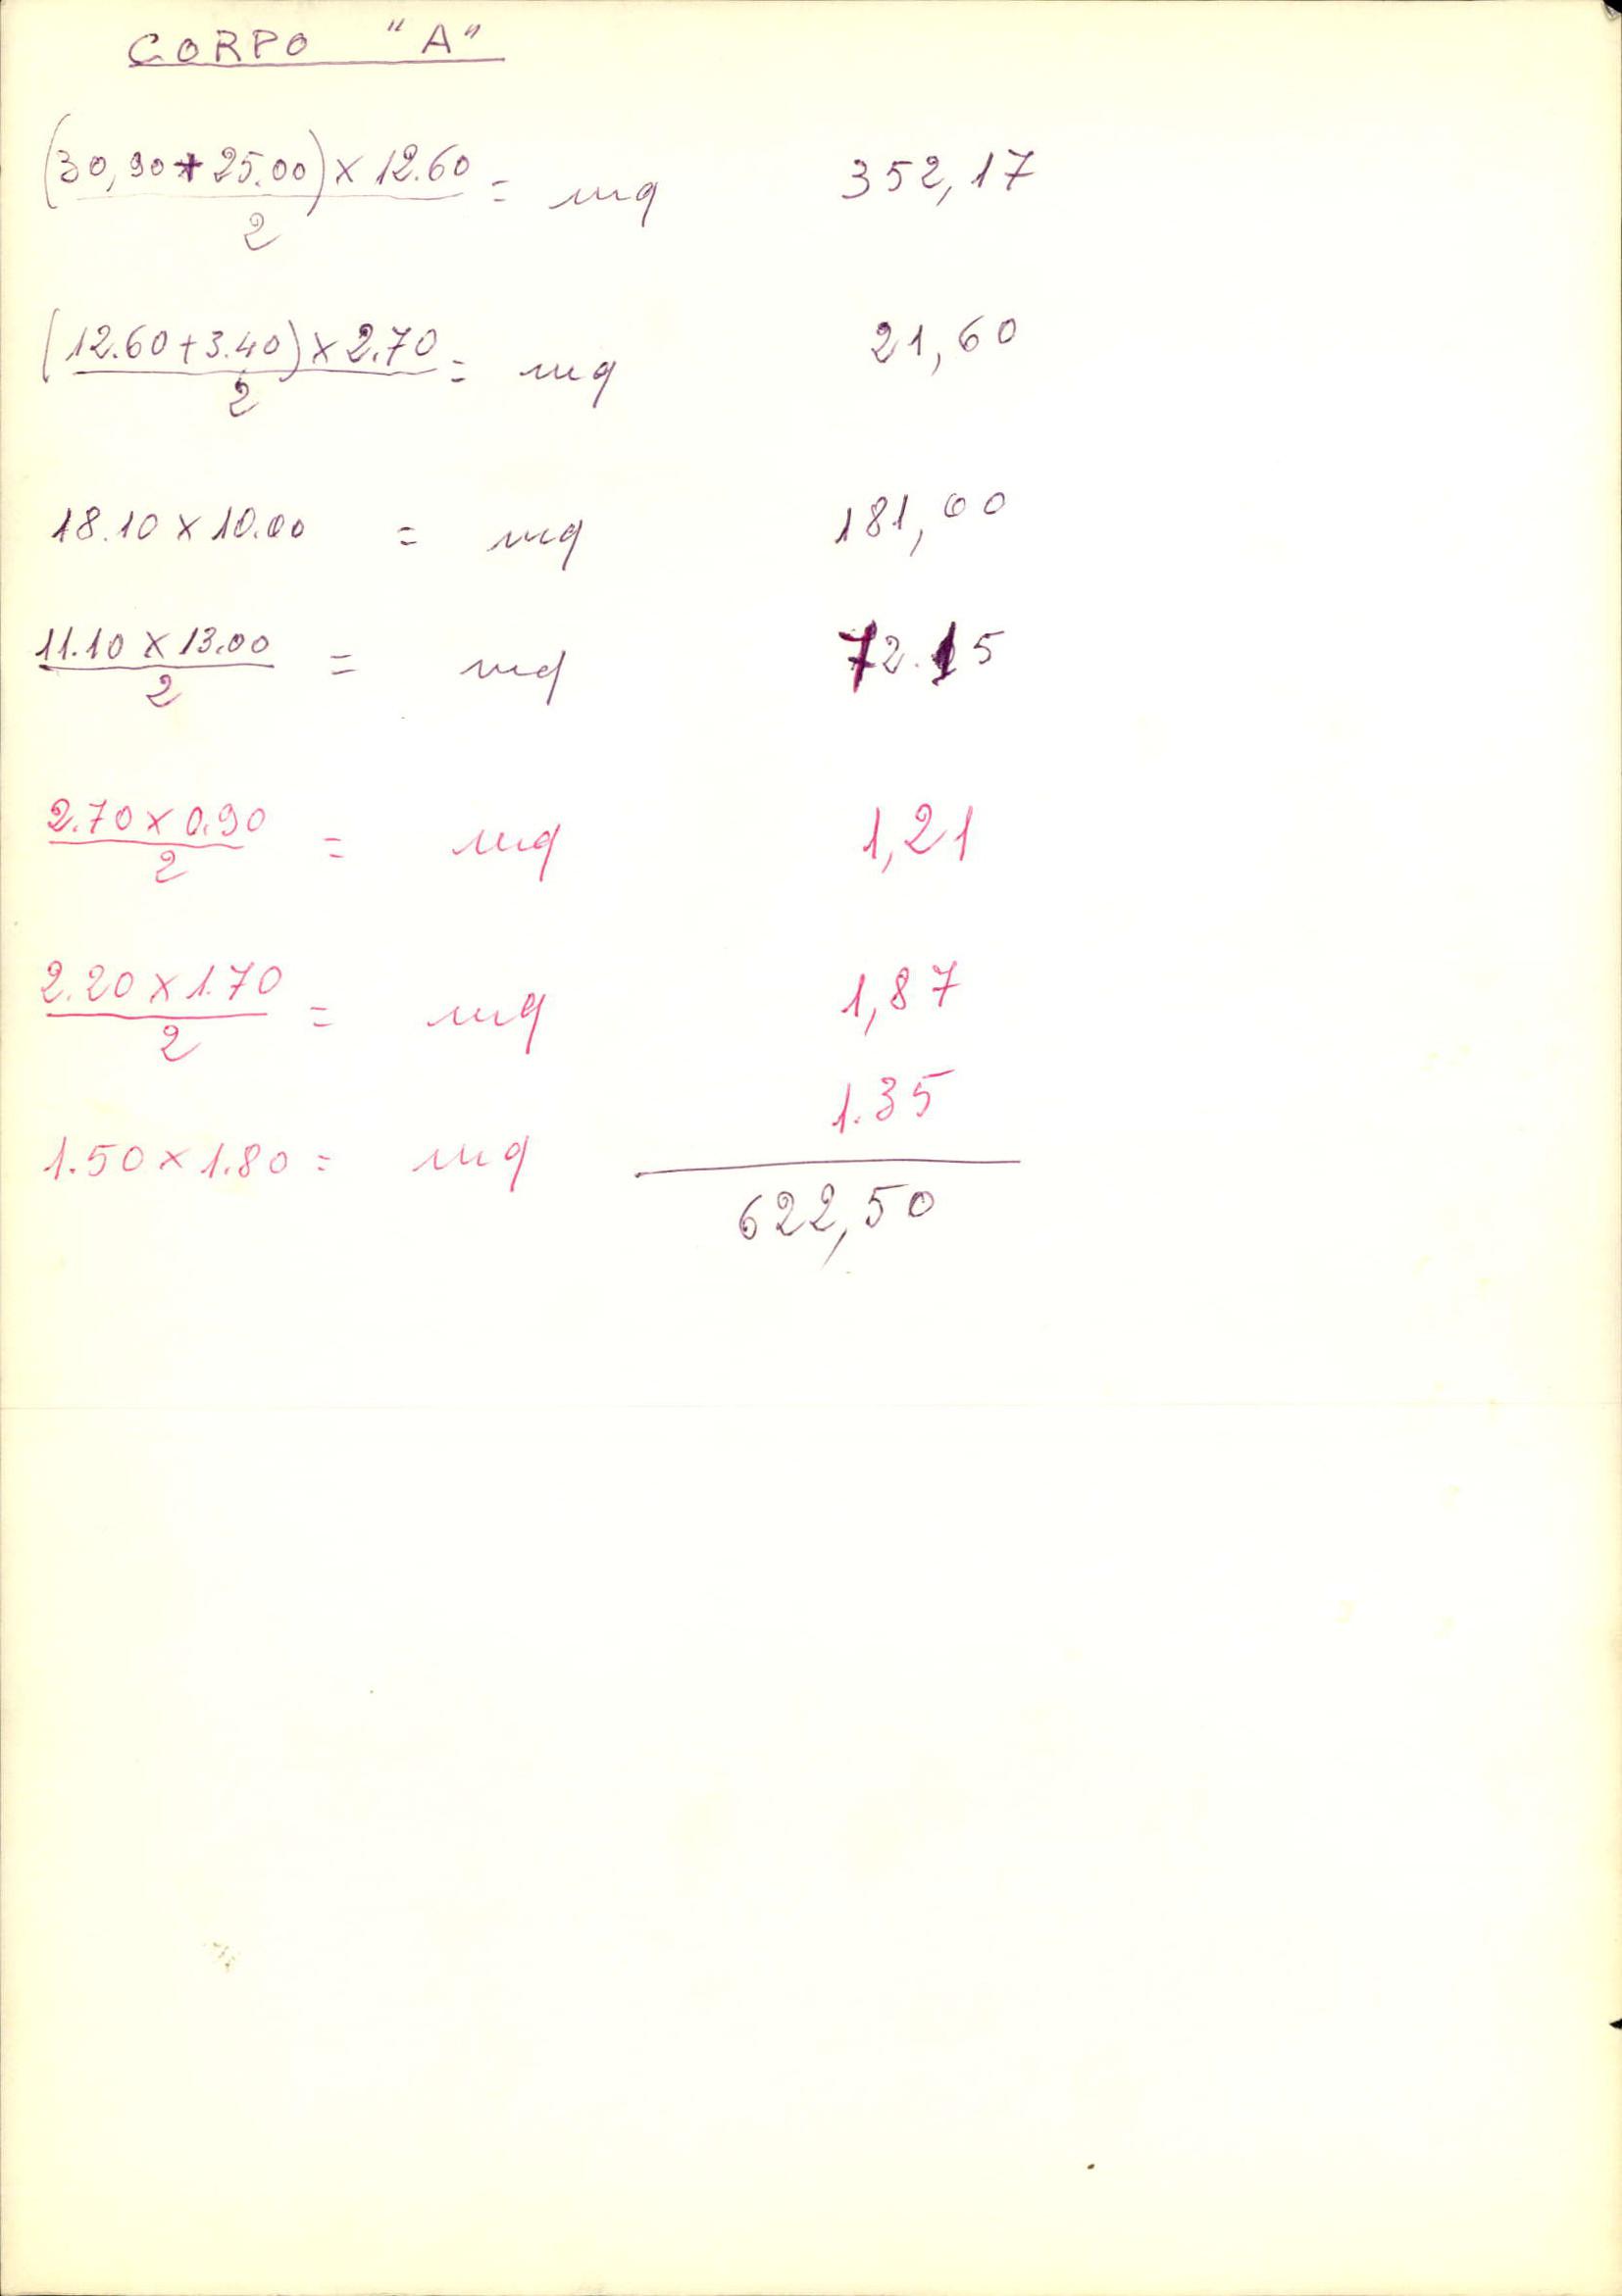 CORPO "A"
(30,90+25.00)x12.60
2
= mq 352,17
(12.60+3.40)x2.70
2
= mq 21,60
18.10x10.00 = mq 181,00
11.10x13.00
2
= mq 72.15
2.70x0.90
2
= mq 1,21
2.20x1.70
2
= mq 1,87
1.50x1.80= mq 1.35
622,50